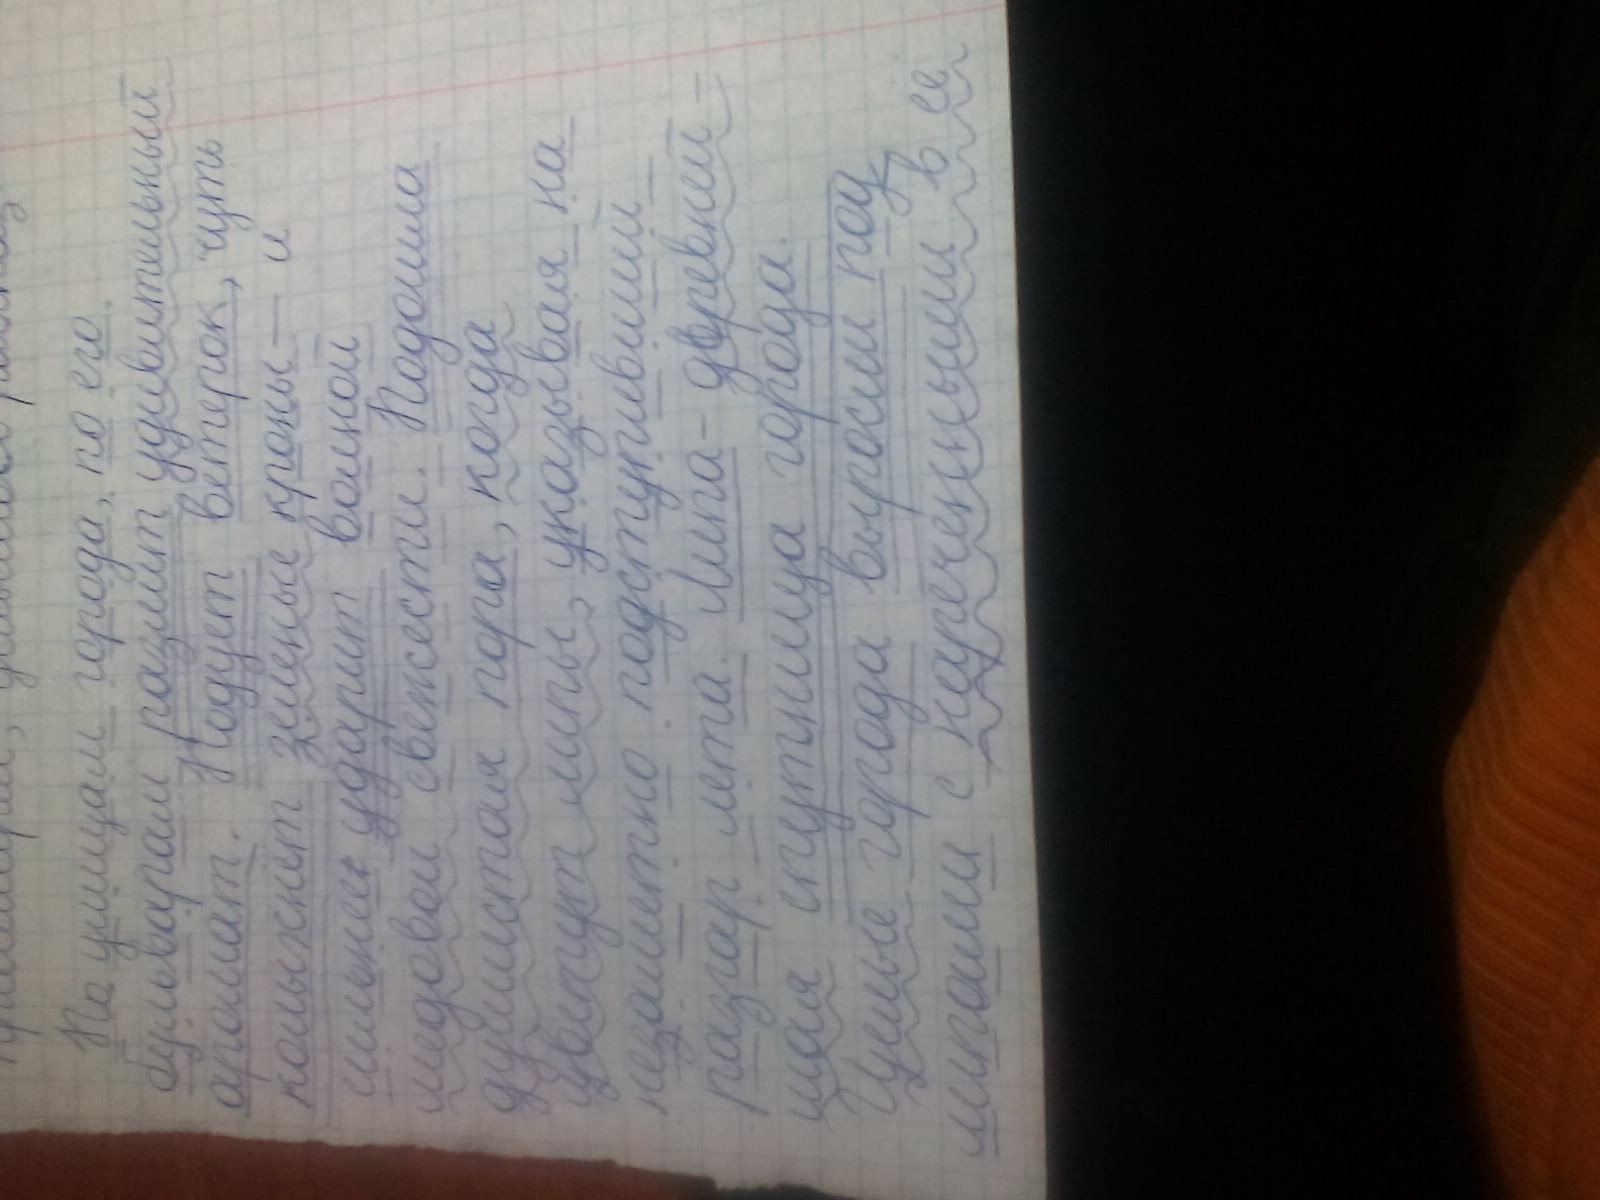 По улицам города, по его
бульварам разлит удивительный
аромат. Подует ветерок, чуть
колыхнёт зеленые кроны – и
сильнее ударит волной
медовой свежести. Подошла
душистая пора, когда
цветут липы, указывая на
незаметно подступивший
разгар лета. Липа – древней-
шая спутница города.
Целые города выросли под
липами с наречёнными в её